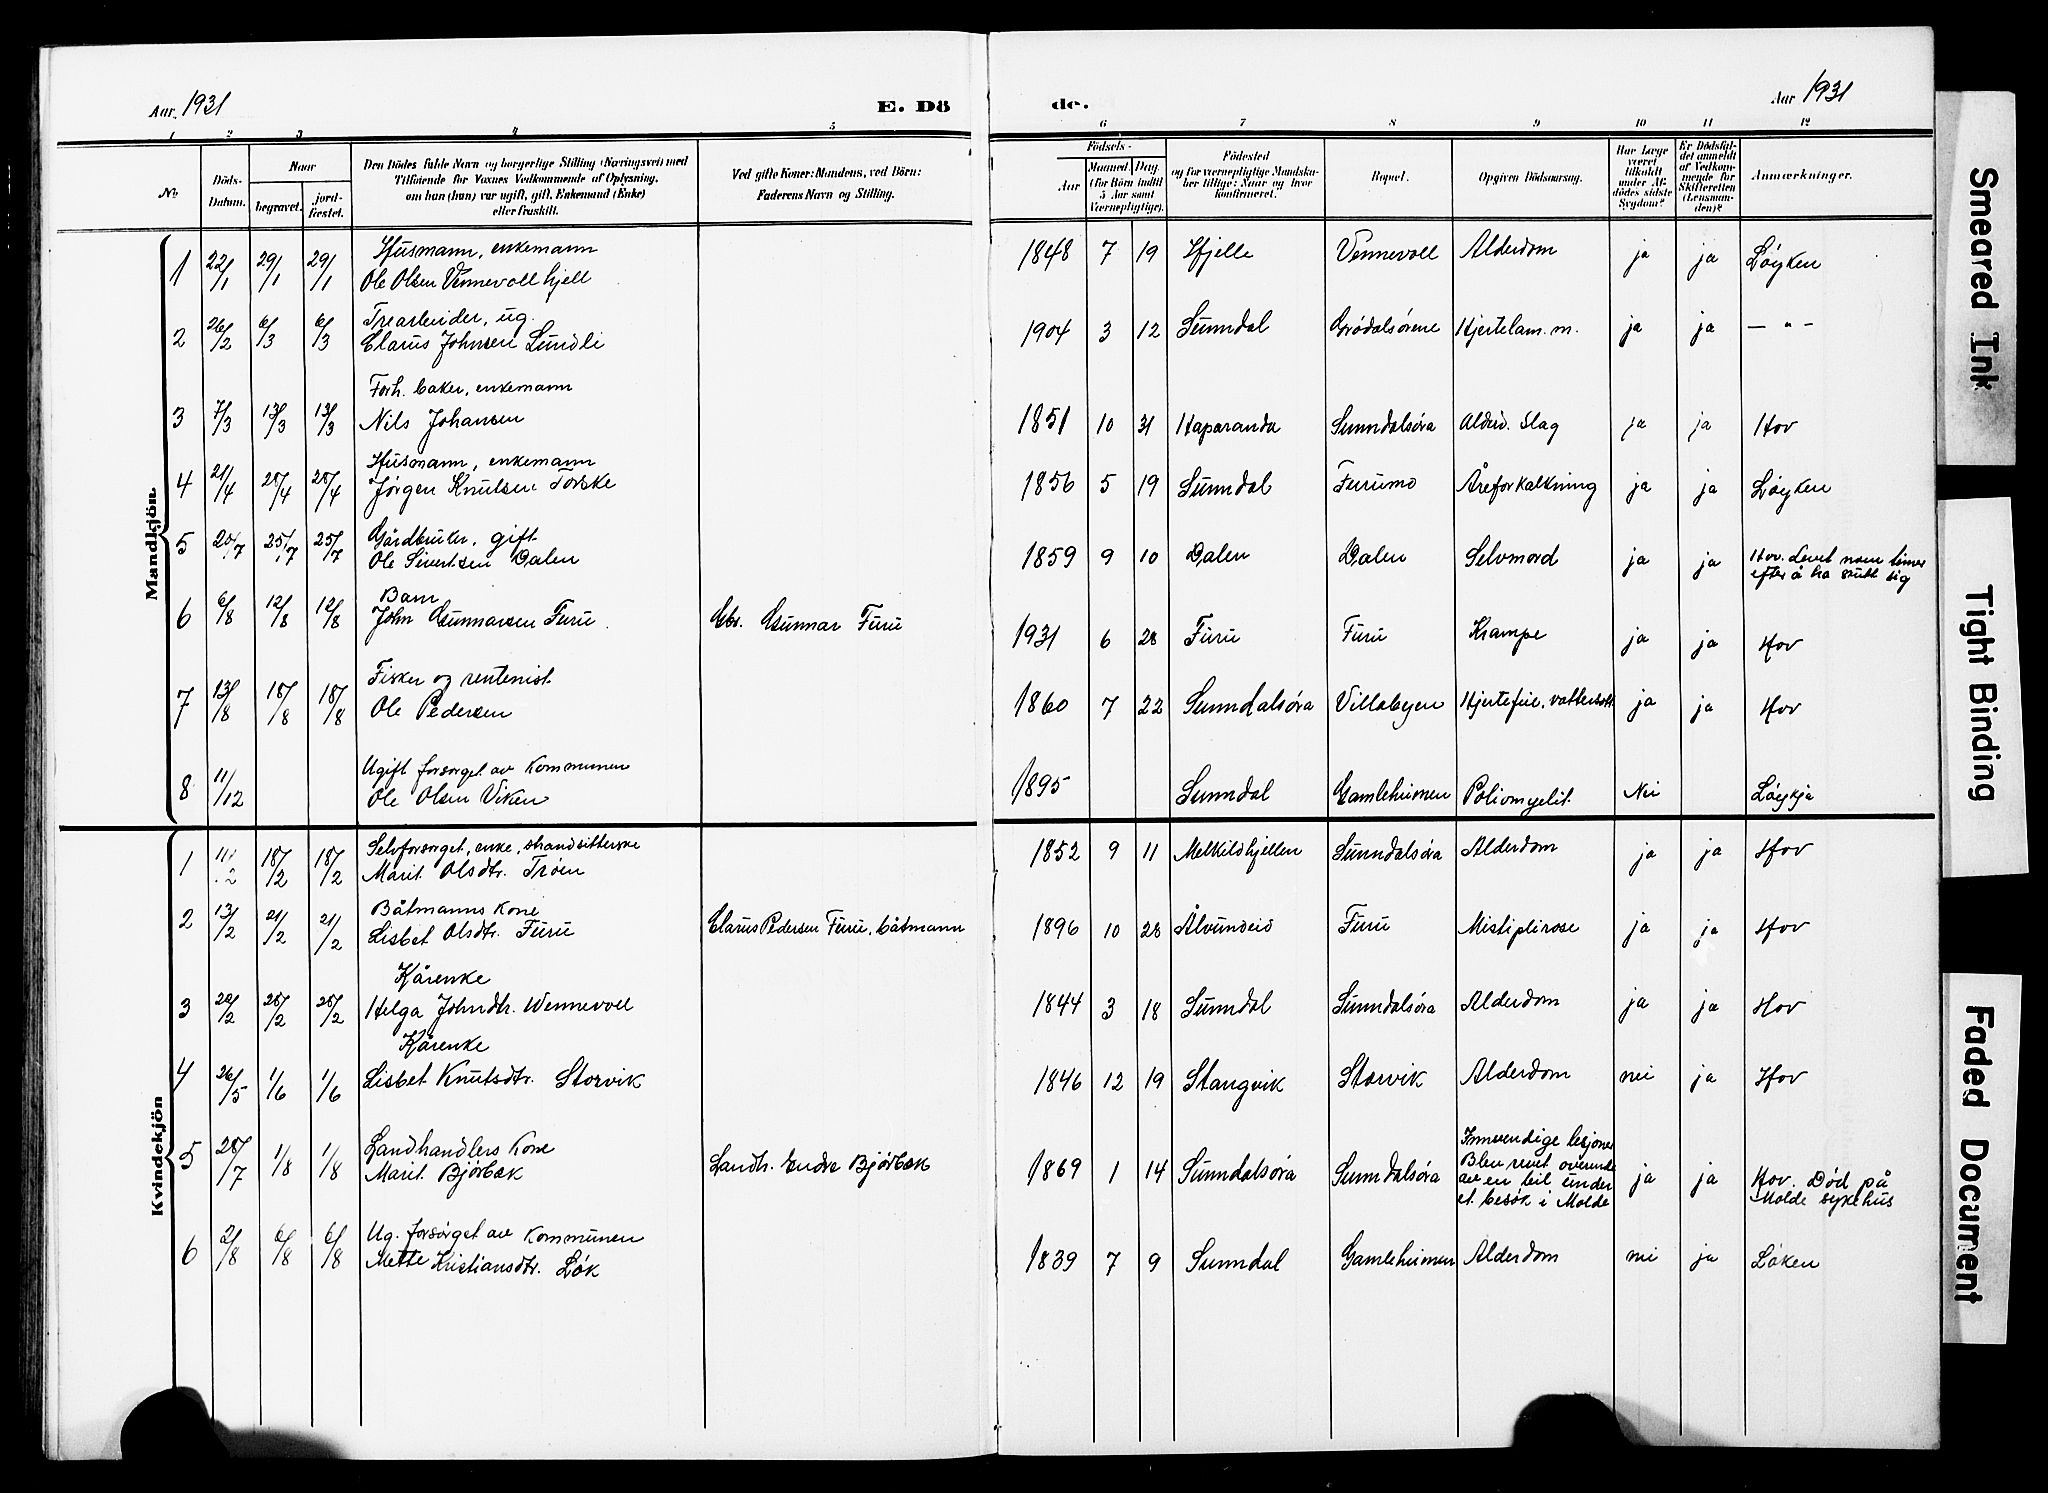 Aar 1931
E. Dö
de.
Aar 1931
1 2 3 4 5 6 7 8 9 10 11 12
No
Döds-Datum.
Naar
begravet.
jord-fæstet.
Den Dödes fulde Navn og borgerlige Stilling (Næringsvei) med
Tilföiende for Voxnes Vedkommende af Oplysning,
om han (hun) var ugift, gift, Enkemand (Enke)
eller fraskilt.
Ved gifte Koner: Mandens, ved Börn:
Faderens Navn og Stilling.
Födsels-
Aar
Maaned
Dag
(for Börn indtil
5 Aar samt
Værnepligtige).
Födested
og for værnepligtige Mandska-
ber tillige: Naar og hvor
konfirmeret.
Bopæl.
Opgiven Dödsaarsag.
Har Læge
været
tilkaldt
under Af-
dödes sidste
Sygdom?
Er Dödsfal-
det anmeldt
af Vedkom-
mende for
Skifteretten
(Lensman-
den)?
Anmærkninger.
Mandkjön
Husmann, enkemann
1 22/1 29/1 29/1 Ole Olsen Vennevollhjell 1848 7 19 Hjelle Vennevoll Alderdom ja ja Løyken
Trearbeider, ug.
2 26/2 6/3 6/3 Clarus Johnsen Lundli 1904 3 12 Sunndal Grødalsørene Hjertelam.m. ja ja — " —
Forh. baker, enkemann
3 7/3 13/3 13/3 Nils Johansen 1851 10 31 Haparanda Sunndalsøra Alderd. Slag ja ja Hov
Husmann, enkemann
4 21/4 28/4 28/4 Jørgen Knutsen Torske 1856 5 19 Sunndal Furumo Åreforkalkning ja ja Løyken
Gårdbruker, gift
5 20/7 25/7 25/7 Ole Sivertsen Dalen 1859 9 10 Dalen Dalen Selvmord ja ja Hov. Levet noen timer
efter å ha skutt sig
Barn
6 6/8 12/8 12/8 John Gunnarsen Furu Gbr. Gunnar Furu 1931 6 28 Furu Furu Krampe ja ja Hov
Fisker og rentenist
7 13/8 18/8 18/8 Ole Pedersen 1860 7 22 Sunndalsøra Villabyen Hjertefeil, vattersott ja ja Hov
Ugift forsørget av kommunen
8 11/12 Ole Olsen Viken 1895 Sunndal Gamleheimen Poliomyelit. Nei Løykja
Kvindekjön
Selvforsørget, enke, strandsitterske
1 11/2 18/2 18/2 Marit Olsdtr. Trøen 1852 9 11 Melkildhjellen Sunndalsøra Alderdom ja ja Hov
Båtmanns kone
2 13/2 21/2 21/2 Lisbet Olsdtr. Furu Clarus Pedersen Furu, båtmann 1896 10 28 Ålvundeid Furu ja ja Hov
Kårenke
3 20/2 28/2 28/2 Helga Johndtr. Wennevoll 1844 3 18 Sunndal Sunndalsøra Alderdom ja ja Hov
Kårenke
4 26/5 1/6 1/6 Lisbet Knutsdtr. Storvik 1846 12 19 Stangvik Storvik Alderdom nei ja Hov
Landhandlers kone
5 28/7 1/8 1/8 Marit Bjørbæk Landh. Endre Bjørbæk 1869 1 14 Sunndalsøra Sunndalsøra Innvendige lesjoner
Blev revet overende
av en bil under
et besøk i Molde ja ja Hov. Død på
Molde sykehus
Ug. forsørget av kommunen
6 2/8 6/8 6/8 Mette Kristiansdtr. Løk 1839 7 9 Sunndal Gamleheimen Alderdom nei ja Løken
Smeared Ink
Tight Binding
Faded Document